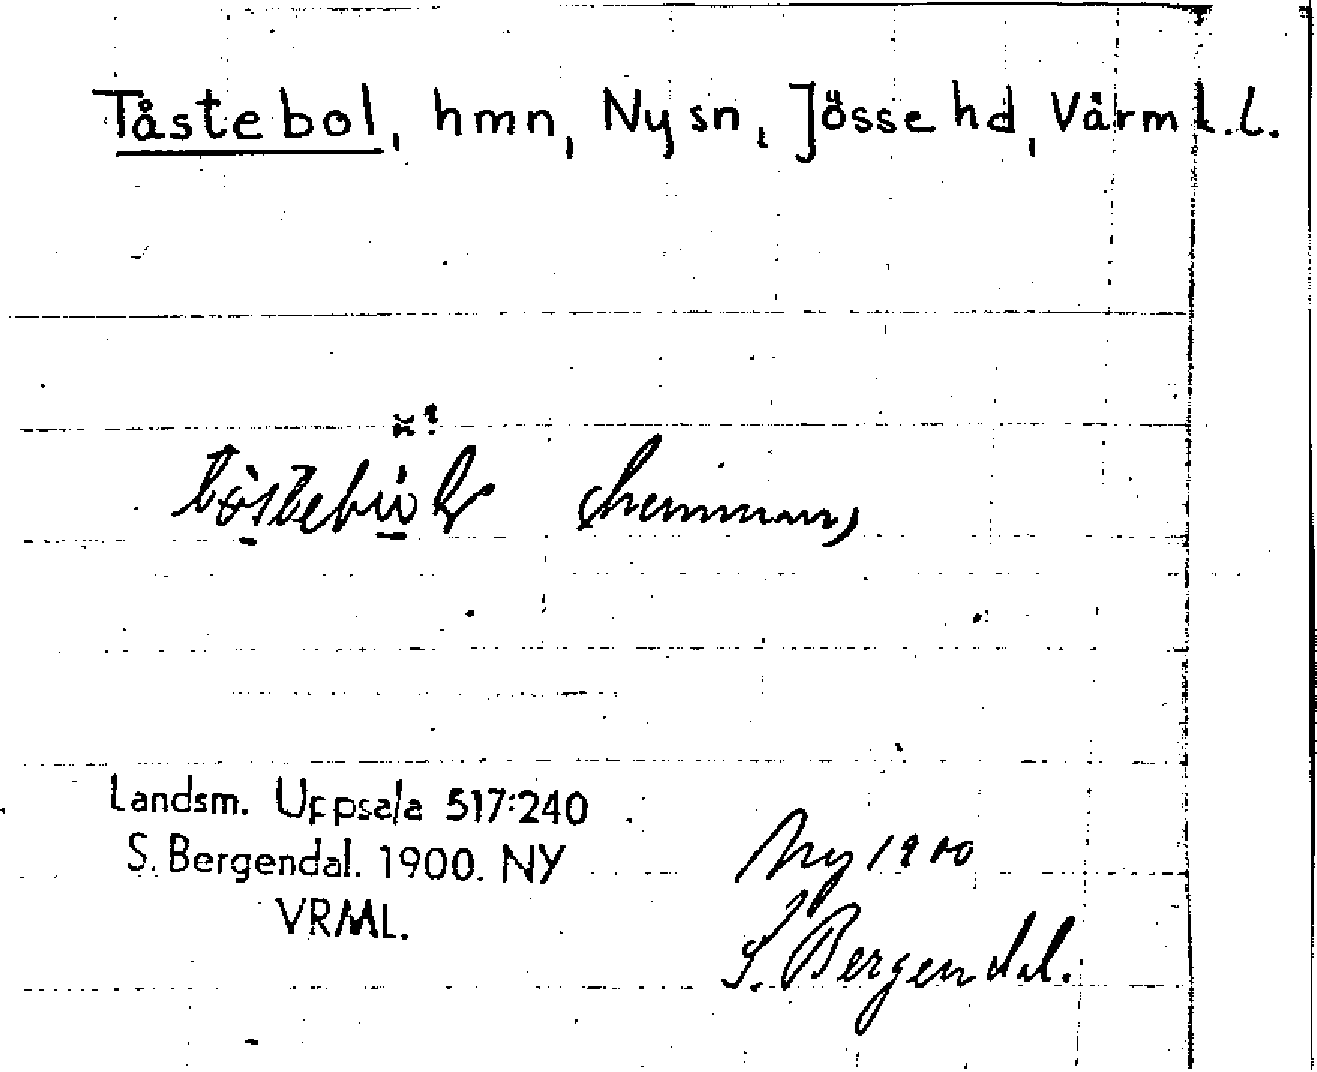 Tåstebol, hmn, Ny sn, Jösse hd, Värml.l.
(hemman)
Landsm. Uppsala 517:240
S. Bergendal. 1900. NY
VRML.
Ny 1900
S. Bergendal.